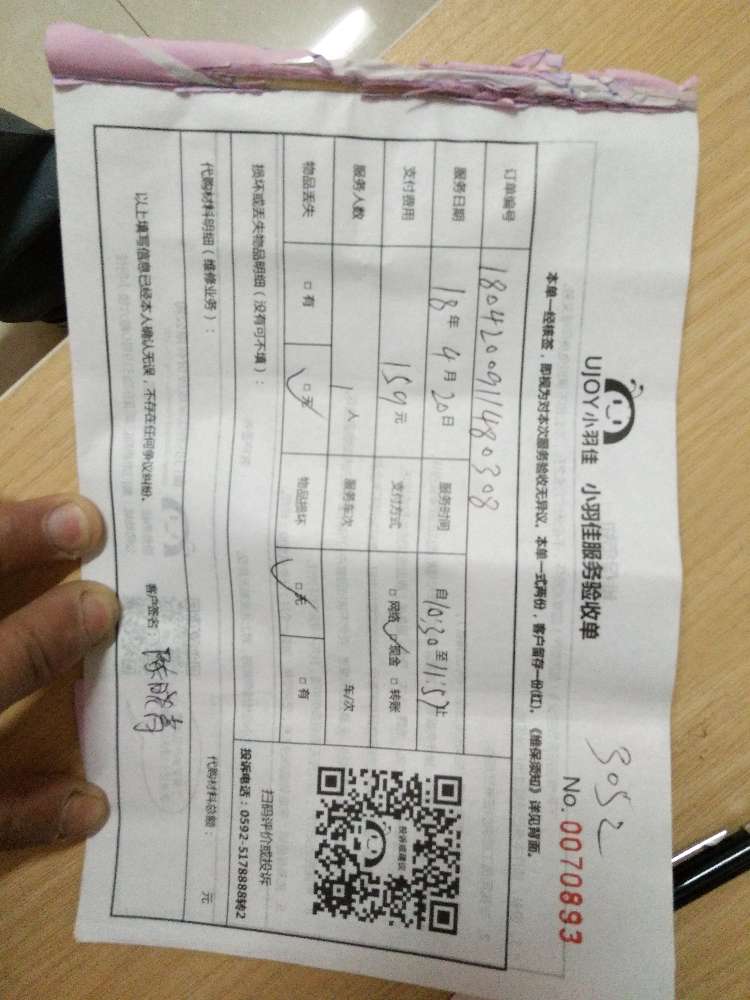 UJOY小羽佳 小羽佳服务验收单
3052
No. 0070893
本单一经核签，即视为对本次服务验收无异议。本单一式两份，客户留存一份(红)。《维保须知》详见背面。
订单编号 180420091480308
服务日期 18年4月20日 服务时间 自10:30至11:57止
支付费用 159元 支付方式 □网络 ☑现金 □转账
服务人数 1人 服务车次 车/次
物品丢失 □有 ☑无 物品损坏 ☑无 □有
投诉或建议
扫码评价或投诉
投诉电话：0592-5178888转2
损坏或丢失物品明细（没有可不填）：
代购材料明细（维修业务）： 代购材料总额： 元
以上填写信息已经本人确认无误，不存在任何争议纠纷。 客户签名：陈晓青